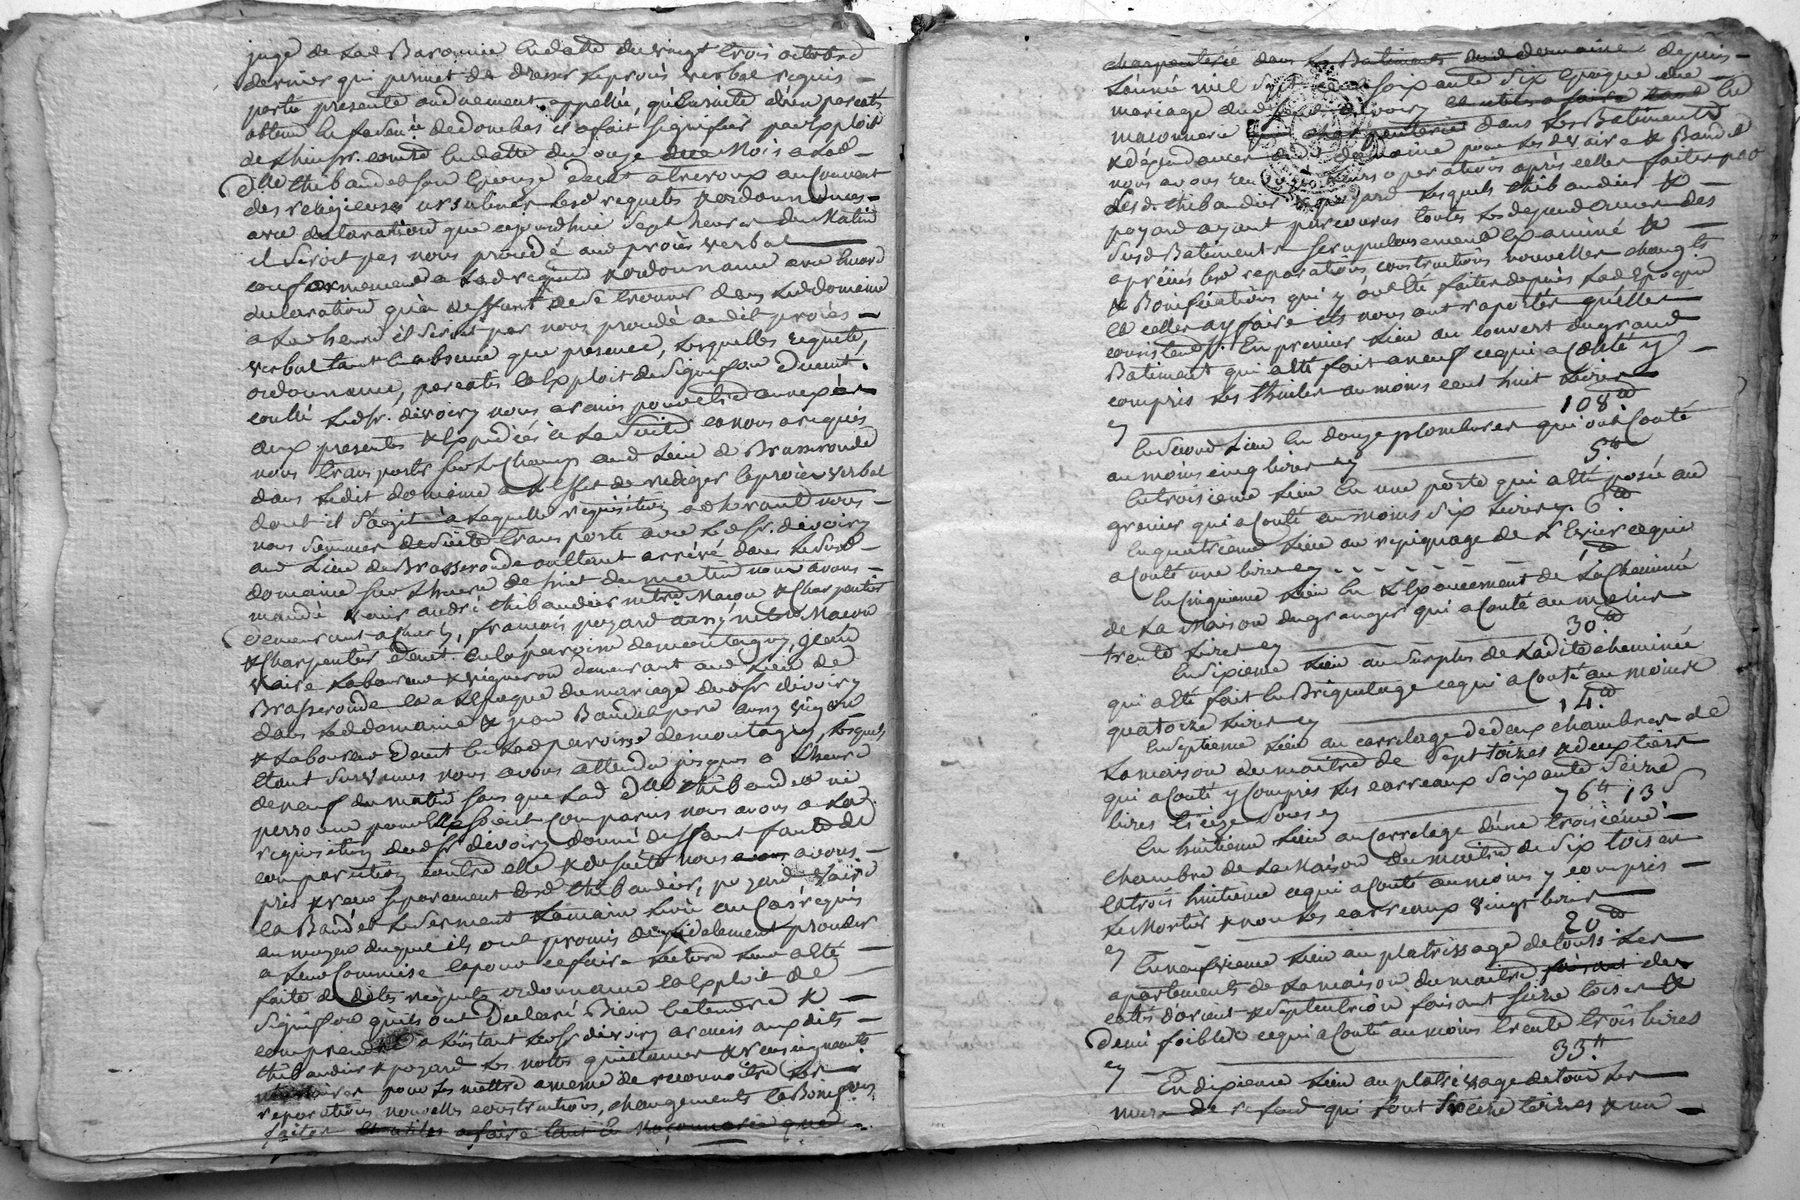 juge de lad Baronnie en datte du vingt trois octobre
dernier qui permet de dresser le procès verbal requis
partie presente ou duement appellée, qu'ensuite d'un pareatis
obtenu en la de dombes il a fait signifier par exploit
de en datte du onze du Mois a lad
dlle thibaudet son Epouse a trevoux au Couvent
des religieuses ursulines lesd requete & ordonnances
avec declaration que aujourdhui sept heures du Matin
il seroit par nous procédé aud procès verbal
conformement a lad requete & ordonnance avec
declaration qu'a deffaut de se trouver dans led domaine
a lad heure il seroit par nous procédé audit procès
verbal tant en absence que presence, lesquelles requete,
ordonnance, pareatis et exploit de signifion duemt.
led sr. devoiry nous a remis pour etre annexés
aux presentes & expediés a la suite et nous a requis
nous transporter sur le champ aud lieu de Brasseronde
dans ledit domaine a l'effet de rediger le procès verbal
dont il s'agit a laquelle requisition adherant nous
nous sommes de suite transporté avec led sr. devoiry
aud lieu de Brasseronde ou étant arrivé dans le susd
domaine sur l'heure de huit du matin nous avons
mandé venir andré thibaudier mtre Maçon & Charpentier
demeurant a , françois pozard aussy mtre Macon
& Charpentier demt. en la paroisse de montagny, jean
vaire laboureur & vigneron demeurant aud lieu de
Brasseronde et a l'epoque du mariage dud sr devoiry
dans led domaine & jean Baudet pere aussy vigneron
& laboureur demt en lad paroisse de montagny, lesquels
etant survenus nous avons attendu jusques a l'heure
de neuf du matin sans que lad dlle thibaudet ni
personne pour elle soient Comparus nous avons a la
requisition dud sr devoiry donné deffaut faute de
comparution contre elle & de suite nous avons avons
pris & reçu separement desd thibaudier, pozard vaire
et Baudet le serment la main levée au Cas requis
au moyen duquel ils ont promis de fidelement proceder
a leur Commise et pour ce faire lecture leur a été
faite de dites requete ordonnance et exploit de
signifion qu'ils ont declaré Bien entendre &
comprendre a l'instant led sr devoiry a remis auxdits
thibaudier & pozard les nottes quittances & renseignements
necessaires pour les mettre a meme de reconnoitre les
reparations nouvelles constructions, changements et Bonifions
faites et utiles a faire tant en maçonnerie que
charpenterie dans les Batiments dud domaine depuis
l'année mil sept cent soixante six epoque du
mariage dud sr devoiry et utiles a faire tant en
maconnerie que charpenterie dans les Batiments
& dependances dud domaine pour lesd vaire & Baudet
nous avons leurs operations après celles faites par
lesd. thibaudier & pozard lesquels thibaudier &
pozard ayant parcourus toutes les dependances des
susd Batiments scrupuleusement examiné &
apreciés les reparations, constructions nouvelles changts
& Bonifications qui y ont été faites depuis lad Epoque
et celles a y faire ils nous ont raporter qu'elles
consistent. En premier lieu au couvert du grand
Batiment qui a été fait a neuf ce qui a Coûté y
compris les thuiles au moins cent huit livres
cy 108 tt
En second lieu en douze plombures qui ont Couté
au moins cinq livres cy 5 tt
En troisieme lieu en une porte qui a été posée au
grenier qui a Couté au moins six livres cy 6 tt
En quatrieme lieu au repiquage de l'Evier ce qui
a Couté une livre cy 1 tt
En Cinquieme lieu en l'Exoucement de la Cheminée
de la Maison du granger qui a Couté au moins
trente livres cy 30 tt
En sixieme lieu au surplus de ladite cheminée
qui a été fait en Briquetage ce qui a Couté au moins
quatorze livres cy 14 tt
En septieme lieu au carrelage de deux chambres de
la maison du maitre de sept toises & deux tiers
qui a Couté y Compris les carreaux soixante seize
livres treize sous cy 76 tt 13 s
En huitieme lieu au Carrelage d'une troisieme
chambre de la Maison du maitre de six toises
et trois huitieme ce qui a Couté au moins y compris
le Mortier & non les carreaux vingt livres
cy 20 tt
En neuvieme lieu au platrissage de touts les
apartements de la maison du maitre faisant des
cottés d'orient & septentrion faisant seize toises &
demi foibles ce qui a Couté au moins trente trois livres
cy 33 tt
En dixieme lieu au platrissage de tout les
murs de refend qui sont treize toises & un